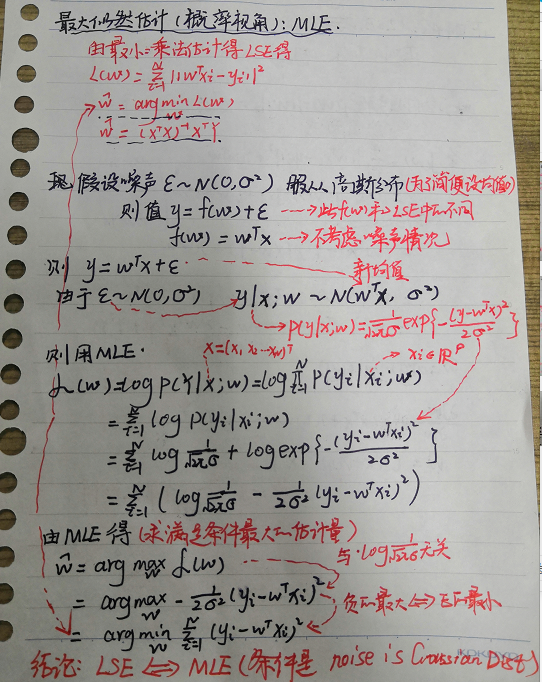 最大似然估计(概率视角):MLE.
由最小二乘法估计得LSE得
L(w) = Σ_{i=1}^{N} ||wᵀxi - yi||²
ŵ = argmin_w L(w)
ŵ = (XᵀX)⁻¹XᵀY
现假设噪声 ε~N(0,σ²) 服从高斯分布(为了简便设均值0)
则值 y = f(w)+ε ---> 此f(w)和LSE中的不同
f(w) = wᵀx ---> 不考虑噪声情况
则 y = wᵀx+ε 新均值
由于 ε~N(0,σ²) y|x;w ~ N(wᵀx, σ²)
p(y|x;w) = 1/(√2π σ) exp{-(y-wᵀx)²/2σ²}
则用MLE. x=(x₁ x₂ … x_N)ᵀ xi∈ℝᵖ
ℒ(w) = log P(Y|x;w) = log Π_{i=1}^{N} P(yi|xi;w)
= Σ_{i=1}^{N} log P(yi|xi;w)
= Σ_{i=1}^{N} log 1/(√2π σ) + log exp{-(yi-wᵀxi)²/2σ²}
= Σ_{i=1}^{N} (log 1/(√2π σ) - 1/2σ² (yi-wᵀxi)²)
由MLE得(求满足条件最大的估计量)
与·log 1/(√2π σ) 无关
ŵ = arg max_w ℒ(w)
= argmax_w - 1/2σ² (yi-wᵀxi)² 负的最大<=>正的最小
= argmin_w Σ_{i=1}^{N} (yi-wᵀxi)²
结论: LSE <=> MLE (条件是 noise is Gaussian Dist)
KOKUYO